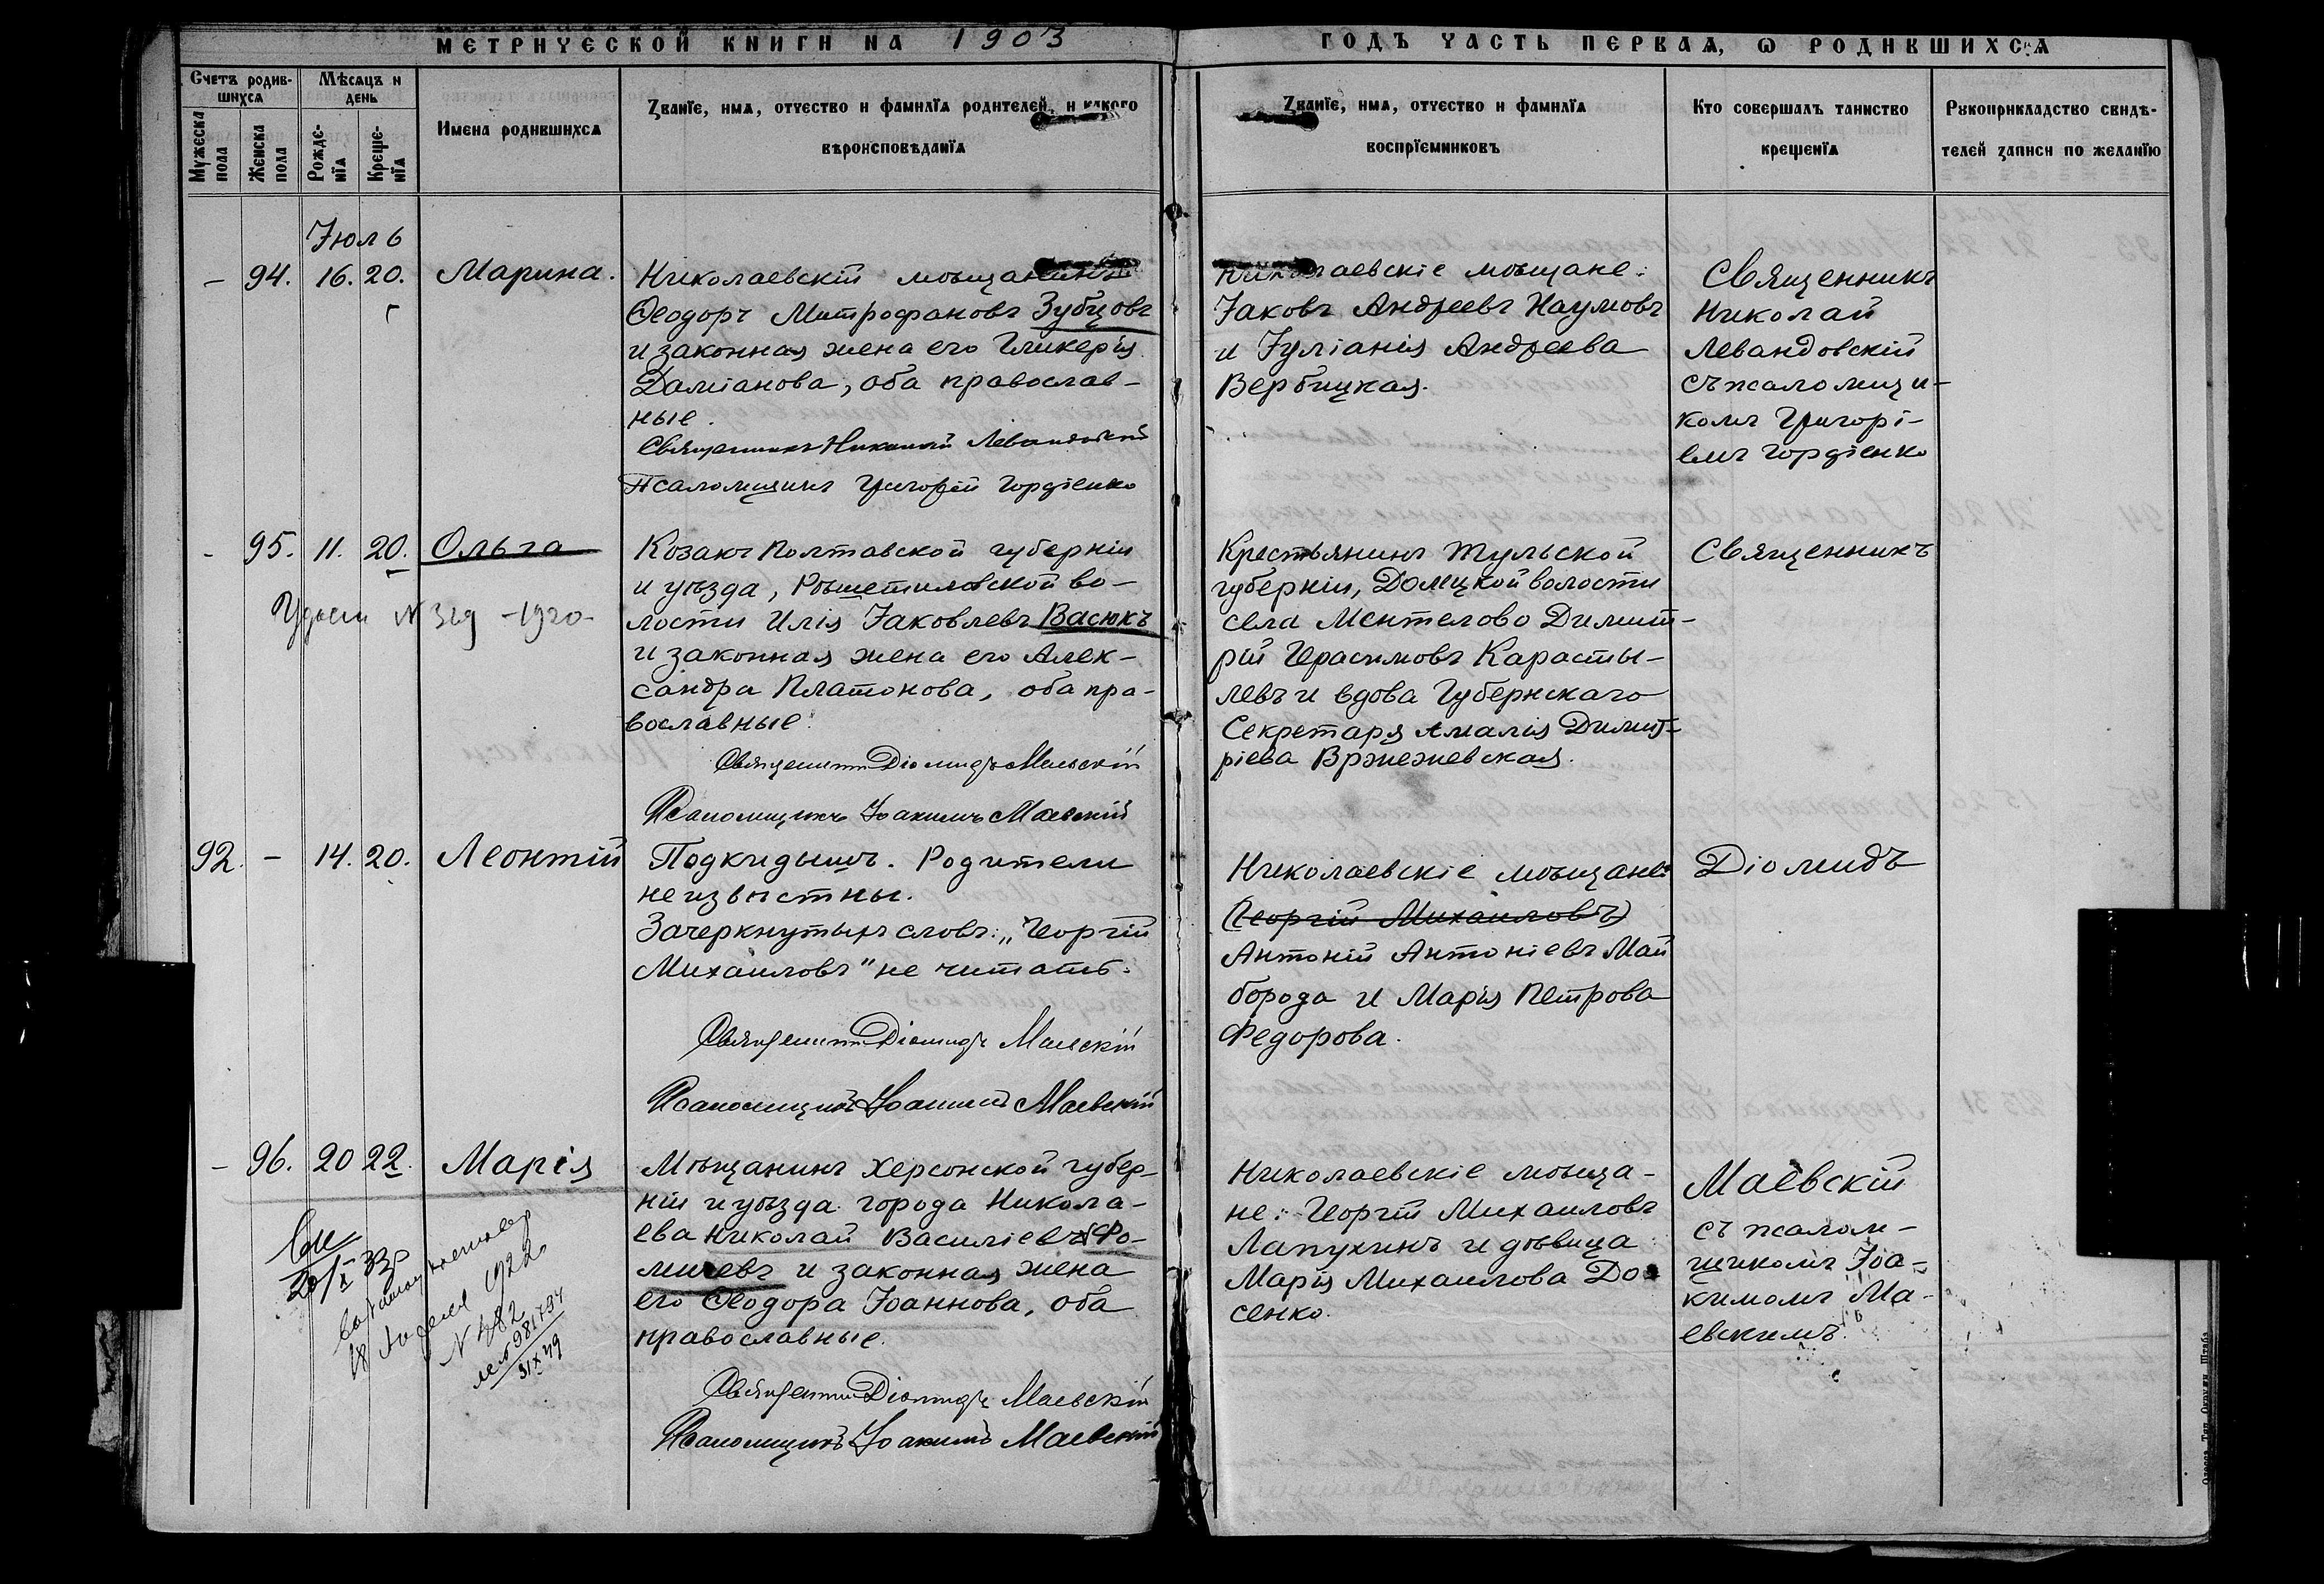 МЕТРИЧЕСКОЙ КНИГИ НА 1903
ГОДЪ ЧАСТЬ ПЕРВАЯ, Ѡ РОДИВШИХСЯ
Счетъ родив-
шихся
Мѣсяцъ и
день
Мужеска
пола
Женска
пола
Рожде-
нїя
Креще-
нїя
Имена родившихся
Званїе, имя, отчество и фамилїя родителей, и какого
вѣроисповѣданїя
Званїе, имя, отчество и фамилїя
воспрїемниковъ
Кто совершалъ таинство
крещенїя
Рукоприкладство свидѣ-
телей записи по желанїю
Іюль
– 94. 16. 20. Марина.
Николаевскій мѣщанинъ
Ѳеодоръ Митрофановъ Зубцовъ
и законная жена его Гликерія
Даміанова, оба православ-
ные.
Священникъ Николай Левандовскій
Псаломщикъ Григорій Гордіенко
Николаевскіе мѣщане:
Іаковъ Андреевъ Наумовъ
и Іуліанія Андреева
Вербицкая.
Священникъ
Николай
Левандовскій
съ псаломщи-
комъ Григорі-
емъ Гордіенко
- 95. 11. 20. Ольга
N 319 -1920-
Козакъ Полтавской губерніи
и уѣзда, Рѣшетиловской во-
лости Илія Іаковлевъ Васюкъ
и законная жена его Алек-
сандра Платонова, оба пра-
вославные.
Священникъ Діомидъ Маевскій
Псаломщикъ Іоакимъ Маевскій
Крестьянинъ Тульской
губерніи, Домецкой волости
села Ментелово Димит-
рій Герасимовъ Карасты-
левъ и вдова Губернскаго
Секретаря Амалія Димит-
ріева Вржежевская.
Священникъ
92. – 14. 20. Леонтій
Подкидышъ. Родители
неизвѣстны.
Зачеркнутыхъ словъ: „Георгій
Михаиловъ" не читать.
Священникъ Діомидъ Маевскій
Псаломщикъ Іоакимъ Маевскій
Николаевскіе мѣщане:
(Георгій Михаиловъ)
Антоній Антоніевъ Май
борода и Марія Петрова
Федорова.
Діомидъ
– 96. 20 22. Марія
18 1922
N 482
31 X 49
Мѣщанинъ Херсонской губер-
ніи и уѣзда города Никола-
ева Николай Василіевъ Фо-
мичевъ и законная жена
его Ѳеодора Іоаннова, оба
православные.
Священникъ Діомидъ Маевскій
Псаломщикъ Іоакимъ Маевскій
Николаевскіе мѣща-
не: Георгій Михаиловъ
Лапухинъ и дѣвица
Марія Михаилова До
сенко.
Маевскій
съ псалом-
щикомъ Іоа-
кимомъ Ма-
евскимъ.